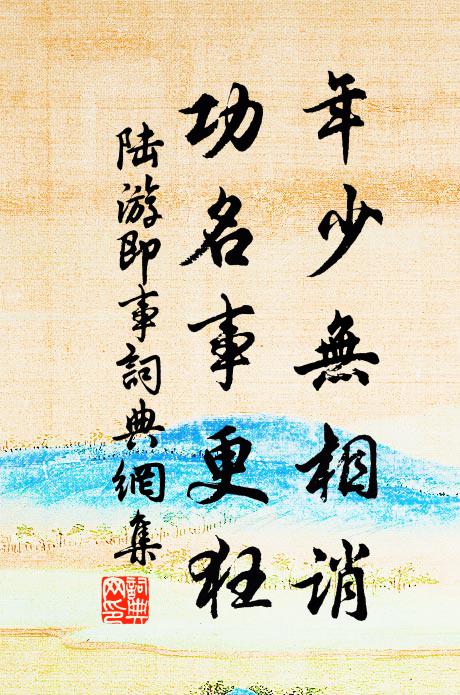 年少無相誚
功名事更狂
陸游即事詞典網集
詞典網印